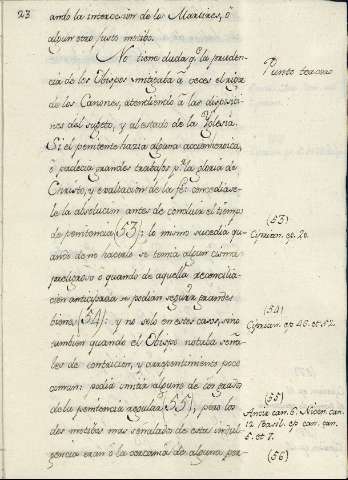 23
ando la intercesion de los Martires, ó
algun otro justo motibo.
No tiene duda qᵉ la pruden-
cia de los Obispos mitigaba á veces el rigor
de los Canones, atendiendo á las disposicio-
nes del sugeto, y al estado de la Yglesia.
Si el penitente hazia alguna accion heroica,
ó padecia grandes trabajos pʳ la gloria de
Christo, y exaltacion de la fé: concediase-
le la absolucion antes de concluir el tiempo
de penitencia (53); lo mismo sucedia qu-
ando de no hacerlo se temia algun cisma
preligroso o quando de aquella reconcilia-
cion anticipada se podian seguir grandes
bienes (54): y no solo en estos casos, sino
tambien quando el Obispo notaba seña-
les de contricion, y arrepentimiento poco
comun: podia omitir alguno de los grados
de la penitencia regular (55), pero los
dos motibos mas señalados de esta indul-
gencia eran ó la cercania de alguna per-
Punto tercero
(53)
Ciprian. ep. 20.
(54)
Ciprian. ep. 40. et 52.
(55)
Ancir can. 5. Nicen. can.
12 Basil. ep can. can.
5. et 7.
(56)